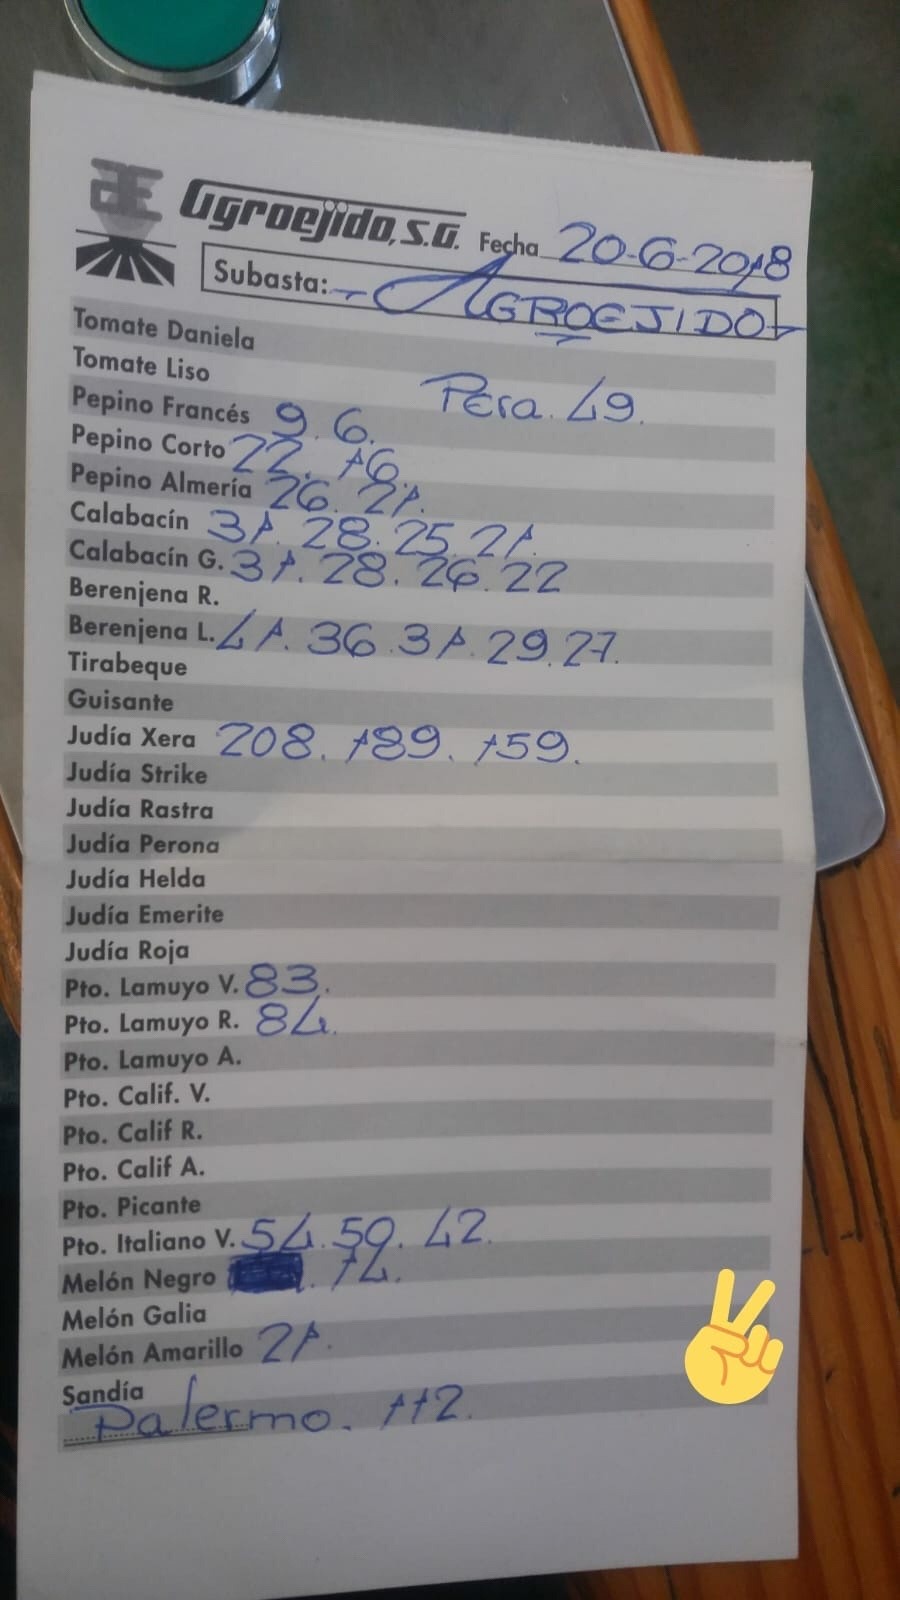 Agroejido, S.A. Fecha 20-6-2018
Subasta: AGROEJIDO
Tomate Daniela
Tomate Liso Pera. 49.
Pepino Francés 9. 6.
Pepino Corto 22. 16.
Pepino Almería 26. 21.
Calabacín 31. 28. 25. 21.
Calabacín G. 31. 28. 26. 22
Berenjena R.
Berenjena L. 41. 36. 31. 29. 27.
Tirabeque
Guisante
Judía Xera 208. 189. 159.
Judía Strike
Judía Rastra
Judía Perona
Judía Helda
Judía Emerite
Judía Roja
Pto. Lamuyo V. 83.
Pto. Lamuyo R. 84.
Pto. Lamuyo A.
Pto. Calif. V.
Pto. Calif R.
Pto. Calif A.
Pto. Picante
Pto. Italiano V. 54. 50. 42.
Melón Negro . 14.
Melón Galia
Melón Amarillo 21.
Sandía
Palermo. 112.